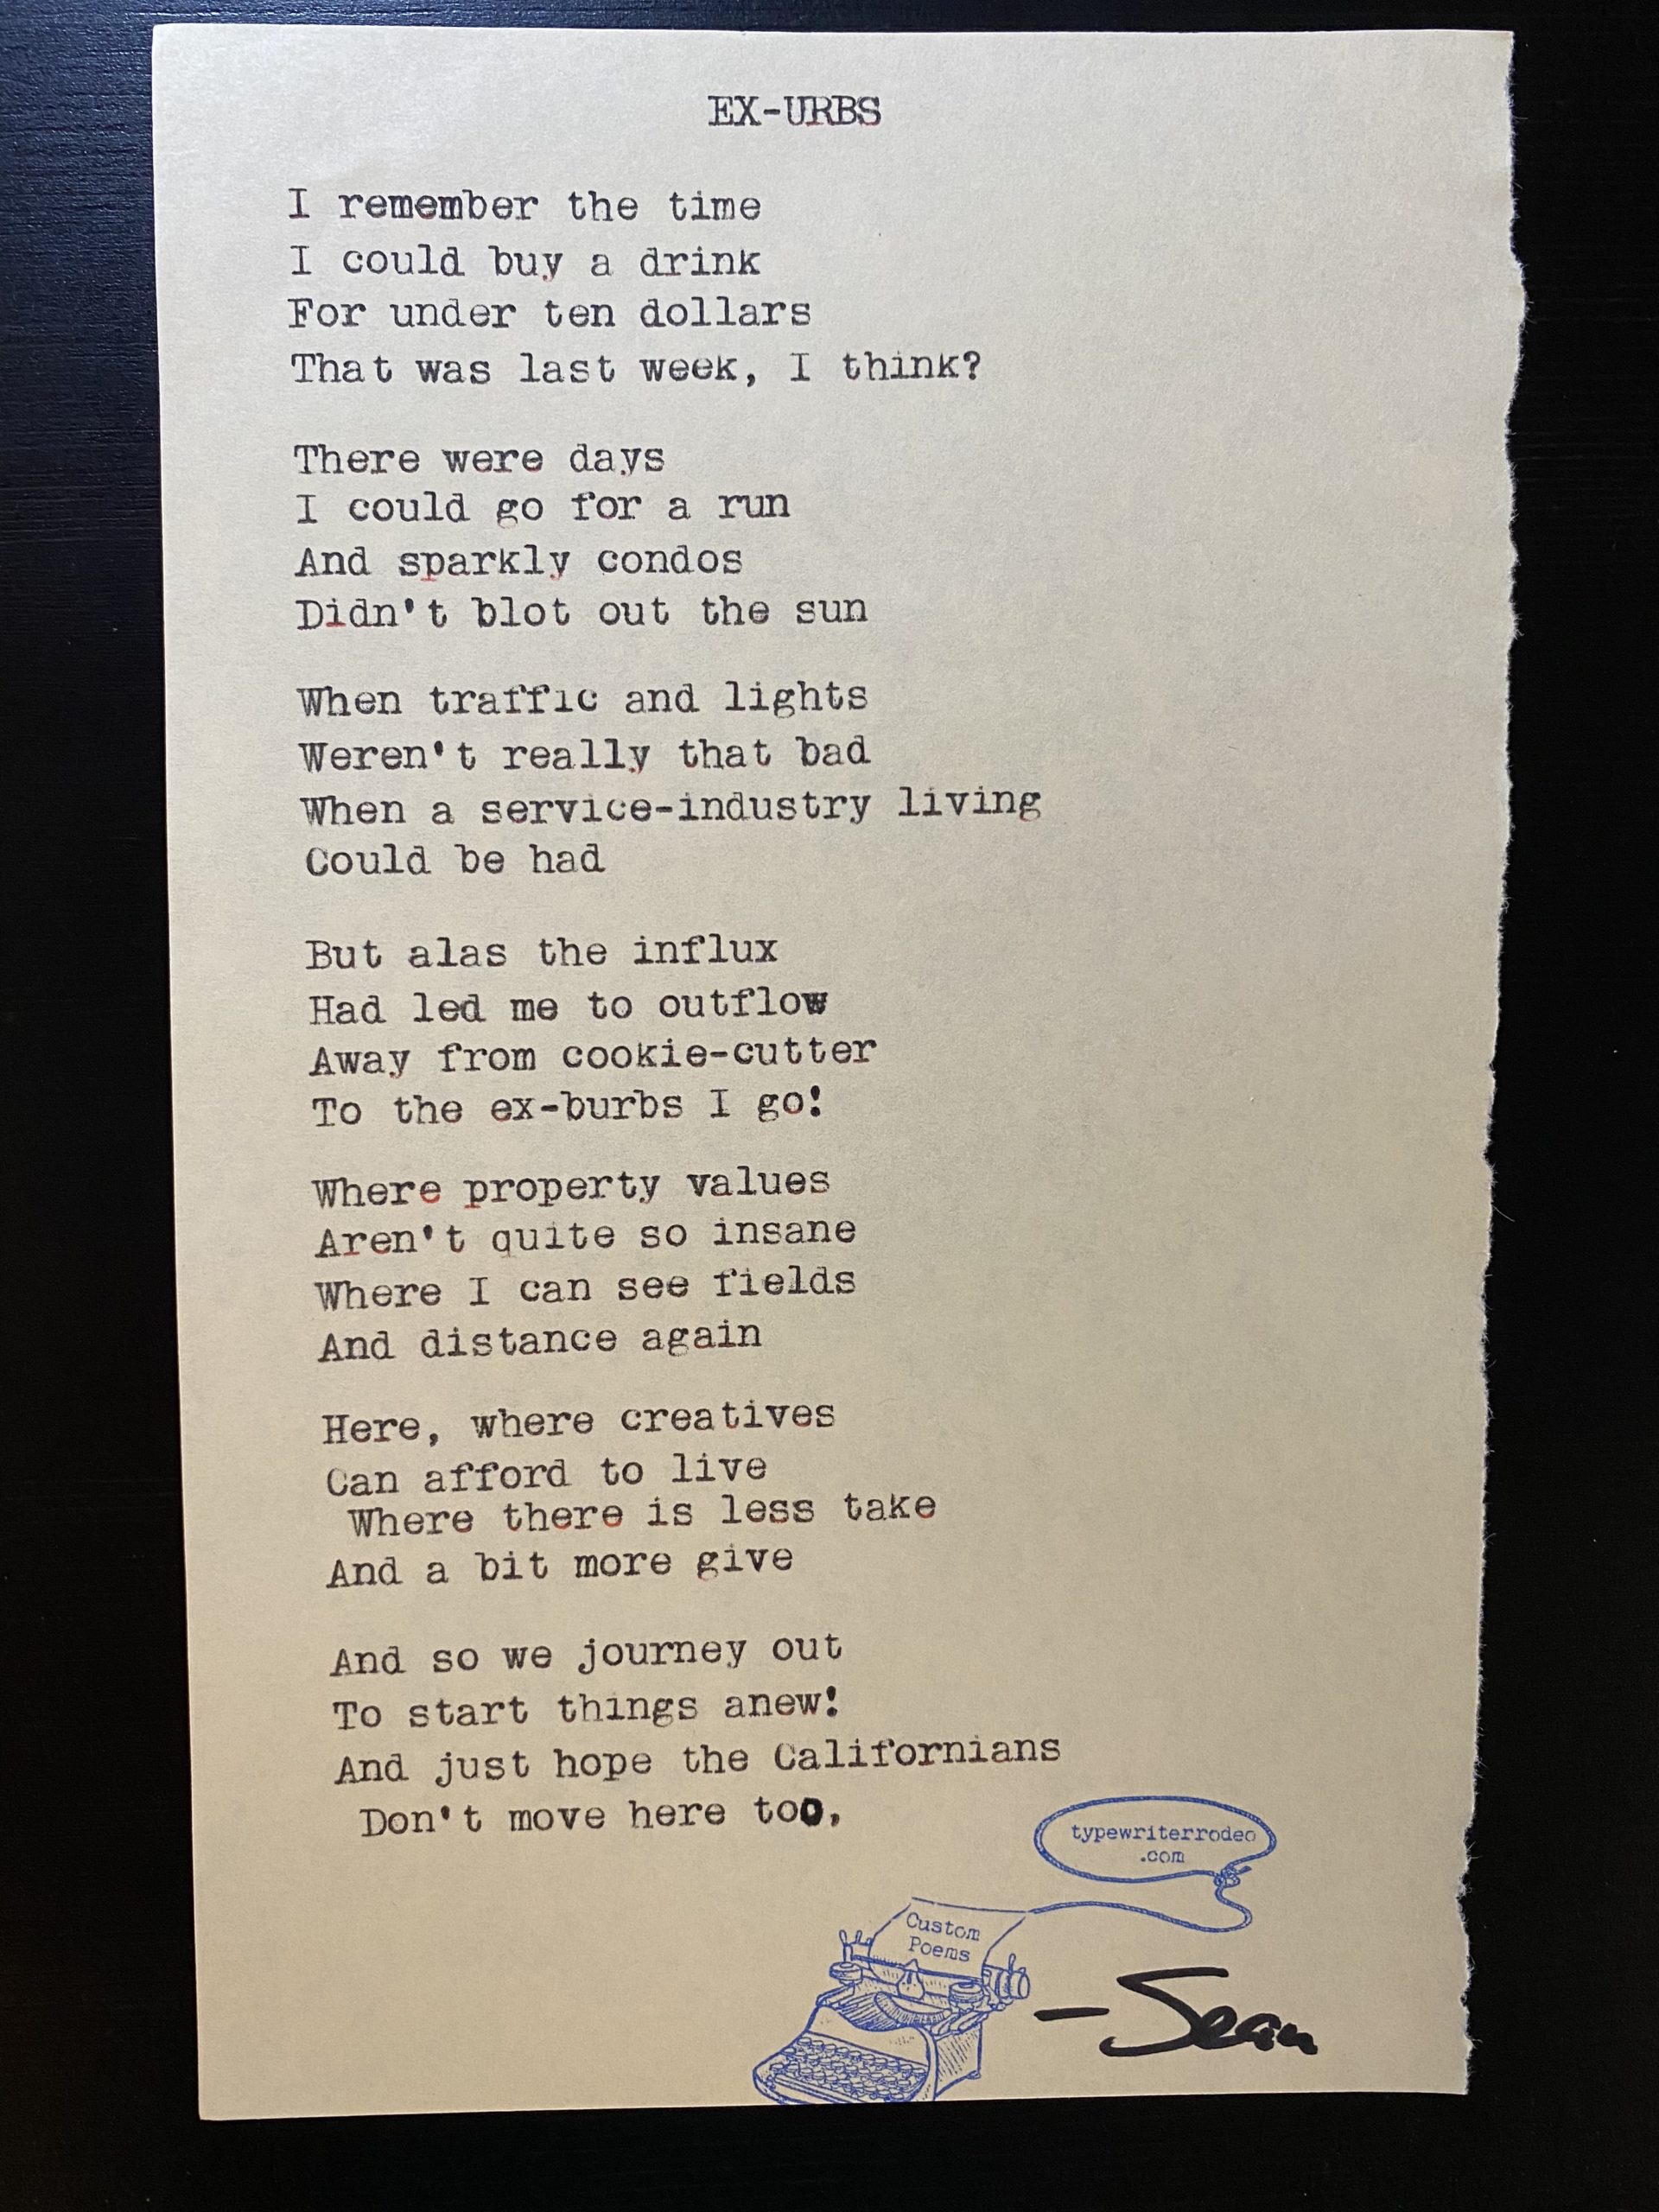 EX-URBS
I remember the time
I could buy a drink
For under ten dollars
That was last week, I think?
There were days
I could go for a run
And sparkly condos
Didn't blot out the sun
When traffic and lights
Weren't really that bad
When a service-industry living
Could be had
But alas the influx
Had led me to outflow
Away from cookie-cutter
To the ex-burbs I go!
Where property values
Aren't quite so insane
Where I can see fields
And distance again
Here, where creatives
Can afford to live
Where there is less take
And a bit more give
And so we journey out
To start things anew!
And just hope the Californians
Don't move here too,
typewriterrodeo
.com
Custom
Poems
-Sean